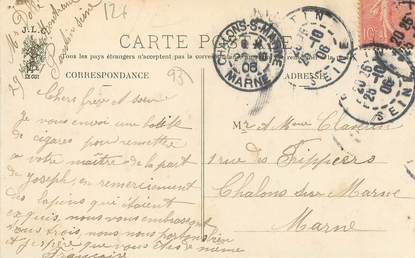 J.L.C.
12x
CARTE POSTALE
Tous les pays étrangers n'acceptent pas la correspondance
CORRESPONDANCE
95
CHALONS-S-MARNE
MARNE
SEINE
25-10
06
SEINE
25-10
06
Chers frère et sœur
Je vous envoi une boite
de cigares pour remettre
a votre maître de la part
de Joseph, en remerciement
des lapins qui étaient
exquis, nous vous embrassons
tous trois, nous nous portons bien
et j'espère que vous êtes de même
Françoise
Mr A Mme
rue des Fripiers
Chalons sur Marne
Marne